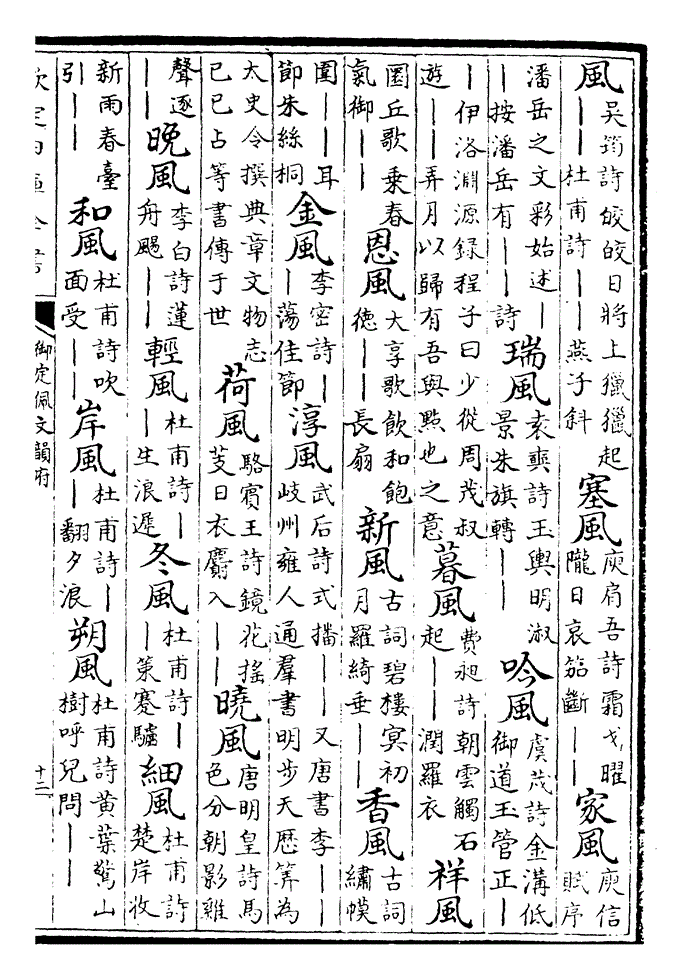 風吳筠詩皎皎日將上獵獵起｜｜杜甫詩｜｜燕子斜塞風庾肩吾詩霜戈曜隴日哀笳斷｜｜家風庾信賦序
潘岳之文彩始述｜｜按潘岳有｜｜詩瑞風袁奭詩玉輿明淑景朱旗轉｜｜吟風虞茂詩金溝低御道玉管正｜
｜伊洛淵源錄程子曰少從周茂叔遊｜｜弄月以歸有吾與點也之意暮風費昶詩朝雲觸石起｜｜潤羅衣祥風
圜丘歌乗春氣御｜｜恩風大享歌飲和飽德｜｜長扇新風古詞碧樓冥初月羅綺垂｜｜香風古詞繡幙
圍｜｜耳節朱絲桐金風李密詩｜｜蕩佳節淳風武后詩式播｜｜又唐書李｜｜岐州雍人通羣書明步天歴筭為
太史令撰典章文物志已巳占等書傳于世荷風駱賓王詩鏡花揺芰日衣麝入｜｜曉風唐明皇詩馬色分朝影雞
聲逐｜｜晩風李白詩蓮舟颺｜｜輕風杜甫詩｜｜生浪遲冬風杜甫詩｜｜策蹇驢細風杜甫詩楚岸收
新雨春臺引｜｜和風杜甫詩吹面受｜｜岸風杜甫詩｜｜翻夕浪朔風杜甫詩黄葉驚山樹呼兒問｜｜
御定佩文韻府
十三